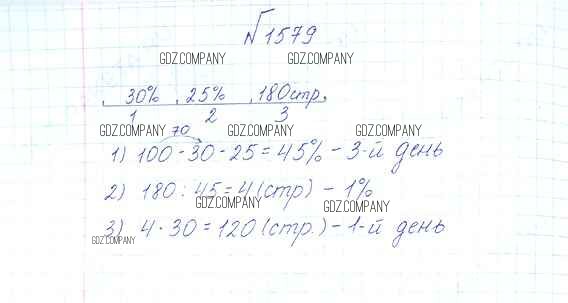 №1579
GDZ.COMPANY GDZ.COMPANY
30% 25% 180стр.
1 2 3
GDZ.COMPANY 70 GDZ.COMPANY GDZ.COMPANY
1) 100 - 30 - 25 = 45% - 3-й день
2) 180 : 45 = 4 (стр) - 1%
GDZ.COMPANY GDZ.COMPANY
3) 4 · 30 = 120 (стр.) - 1-й день
GDZ.COMPANY